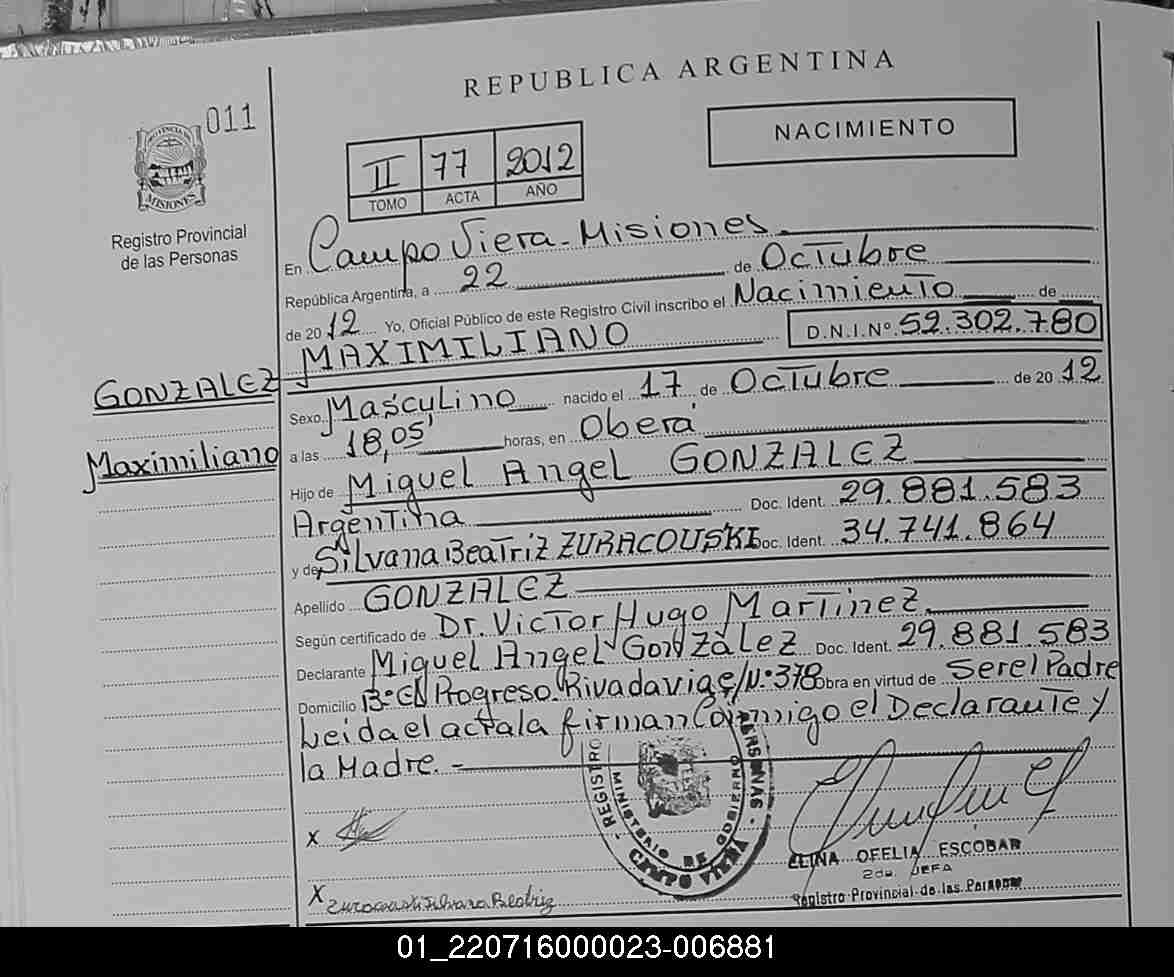 REPUBLICA ARGENTINA
011
NACIMIENTO
II 77 2012
TOMO ACTA AÑO
PROVINCIA DE
MISIONES
Registro Provincial
de las Personas
En Campo Viera - Misiones
República Argentina, a 22 de Octubre
de 2012 Yo, Oficial Público de este Registro Civil inscribo el Nacimiento de
MAXIMILIANO D.N.I.Nº 52.302.780
GONZALEZ
Sexo Masculino nacido el 17 de Octubre de 2012
Maximiliano
a las 18,05' horas, en Oberá
Hijo de Miguel Angel GONZALEZ
Argentina Doc. Ident. 29.881.583
y de Silvana Beatriz ZURACOUSKI Doc. Ident. 34.741.864
Apellido GONZALEZ
Según certificado de Dr. Victor Hugo Martinez
Declarante Miguel Angel Gonzàlez Doc. Ident. 29.881.583
Domicilio Bº El Progreso. Rivadavia e/ Nº 378 Obra en virtud de Ser el Padre
Leida el acta la firman Conmigo el Declarante y
la Madre. -
REGISTRO PERSONAS -
MINISTERIO DE GOBIERNO
CAMPO VIERA
X
ELINA OFELIA ESCOBAR
2da. JEFA
Registro Provincial de las Personas
X Silvana Beatriz
01_220716000023-006881